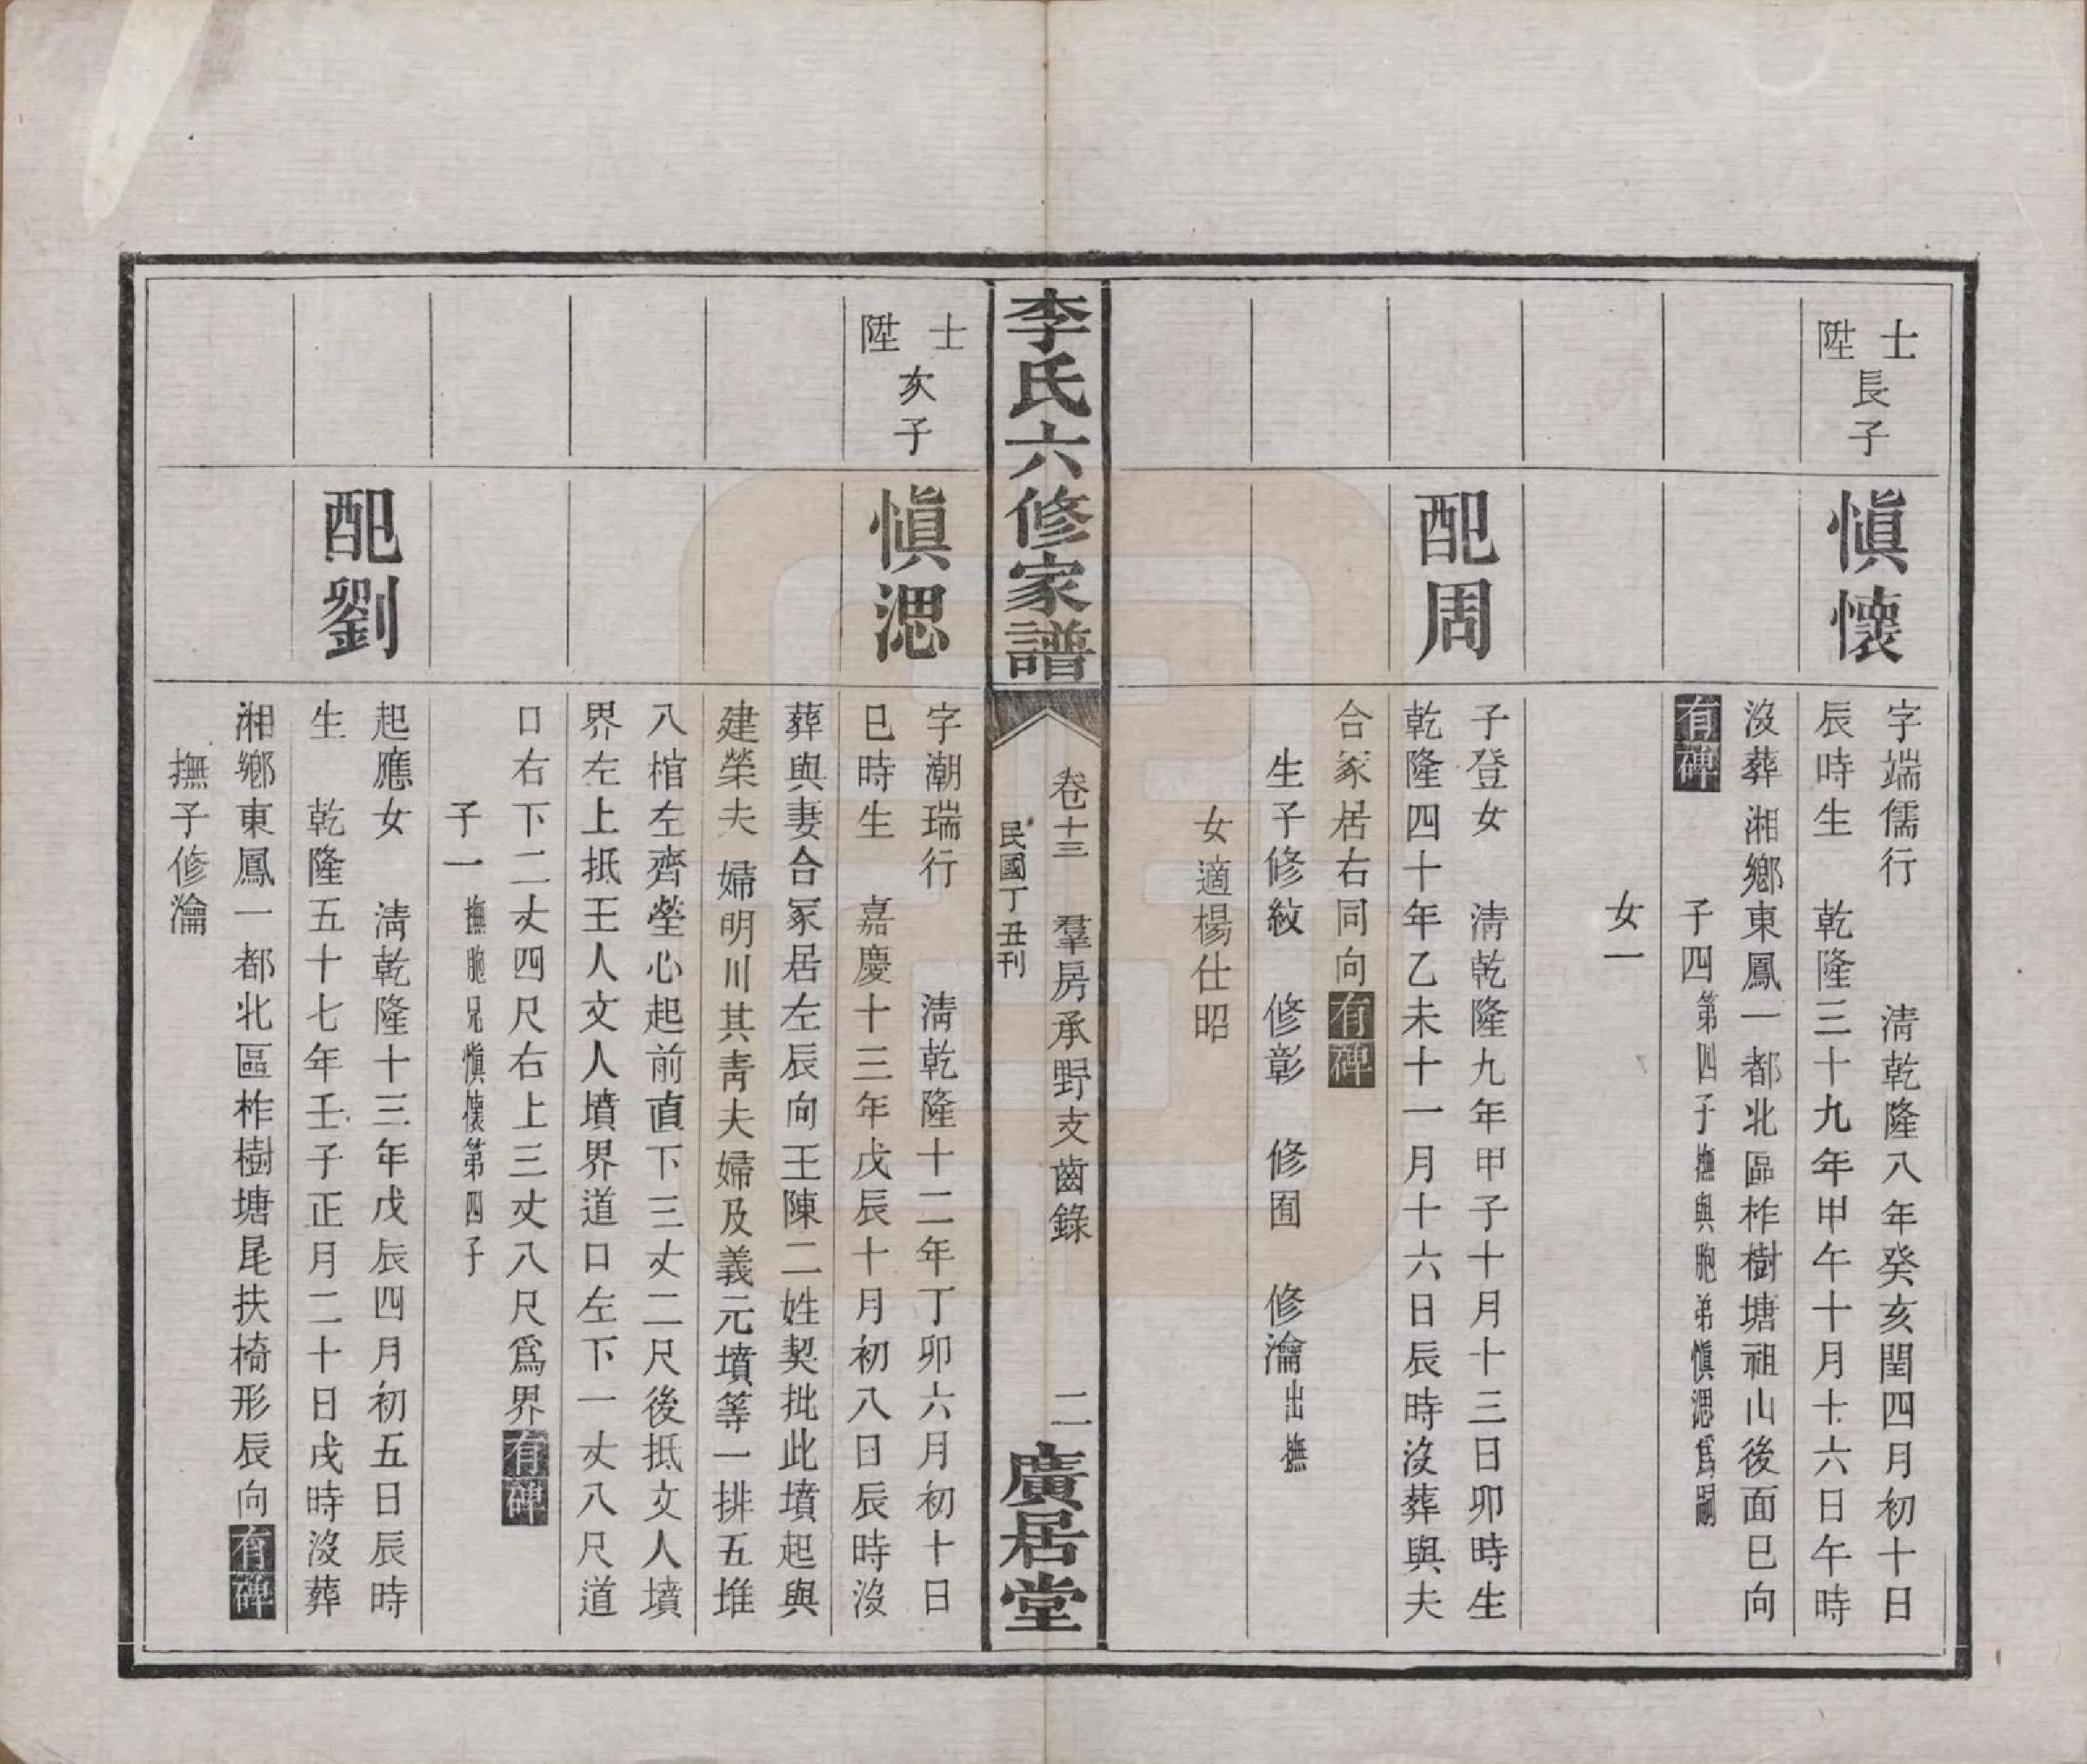 士陞長子
慎懷
字端儒行　淸乾隆八年癸亥閏四月初十日
辰時生　乾隆三十九年甲午十月十六日午時
沒葬湘鄉東鳳一都北區柞樹塘祖山後面巳向
有碑　子四第四子撫與胞弟慎淴爲嗣
女一
配周
子登女　淸乾隆九年甲子十月十三日卯時生
乾隆四十年乙未十一月十六日辰時沒葬與夫
合冢居右同向有碑
生子修紋　修彰　修囿　修瀹出撫
女適楊仕昭
李氏六修家譜
卷十三　羣房承野支齒錄　二
民國丁丑刊
廣居堂
士陞次子
慎淴
字潮瑞行　淸乾隆十二年丁卯六月初十日
巳時生　嘉慶十三年戊辰十月初八日辰時沒
葬與妻合冢居左辰向王陳二姓契批此墳起與
建榮夫婦明川其靑夫婦及義元墳等一排五堆
八棺左齊塋心起前直下三丈二尺後抵文人墳
界左上抵王人文人墳界道口左下一丈八尺道
口右下二丈四尺右上三丈八尺爲界有碑
子一撫胞兄慎懷第四子
配劉
起應女　淸乾隆十三年戊辰四月初五日辰時
生　乾隆五十七年壬子正月二十日戌時沒葬
湘鄉東鳳一都北區柞樹塘尾扶椅形辰向有碑
撫子修瀹